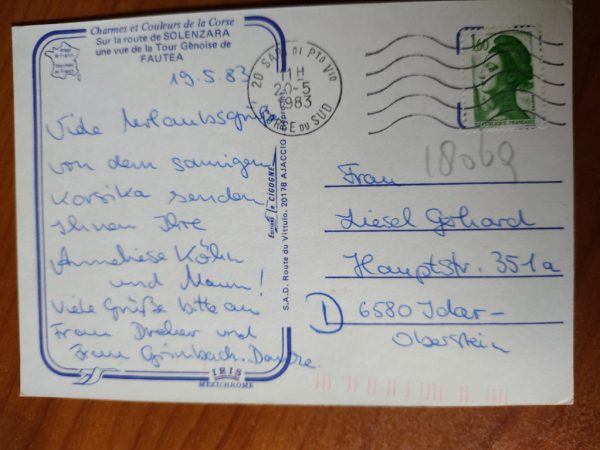 Charmes et Couleurs de la Corse
Sur la route de SOLENZARA
une vue de la Tour Génoise de
FAUTEA
19.5.83
Viele Urlaubsgrüße
von dem sonnigen
Korsika senden
Ihnen Ihre
Anneliese Köhn
und Mann!
Viele Grüße bitte an
Frau Dreher und
Frau Grimbach. Danke.
IRIS
MEXICHROME
Editions la CIGOGNE
S.A.D. Route du Vittulo. 20178 AJACCIO
20 SARI DI PTO VIO
11H
20-5
1983
CORSE DU SUD
1,60
REPUBLIQUE FRANÇAISE
18069
Frau
Liesel Gerhard
Hauptstr. 351a
D 6580 Idar-
Oberstein